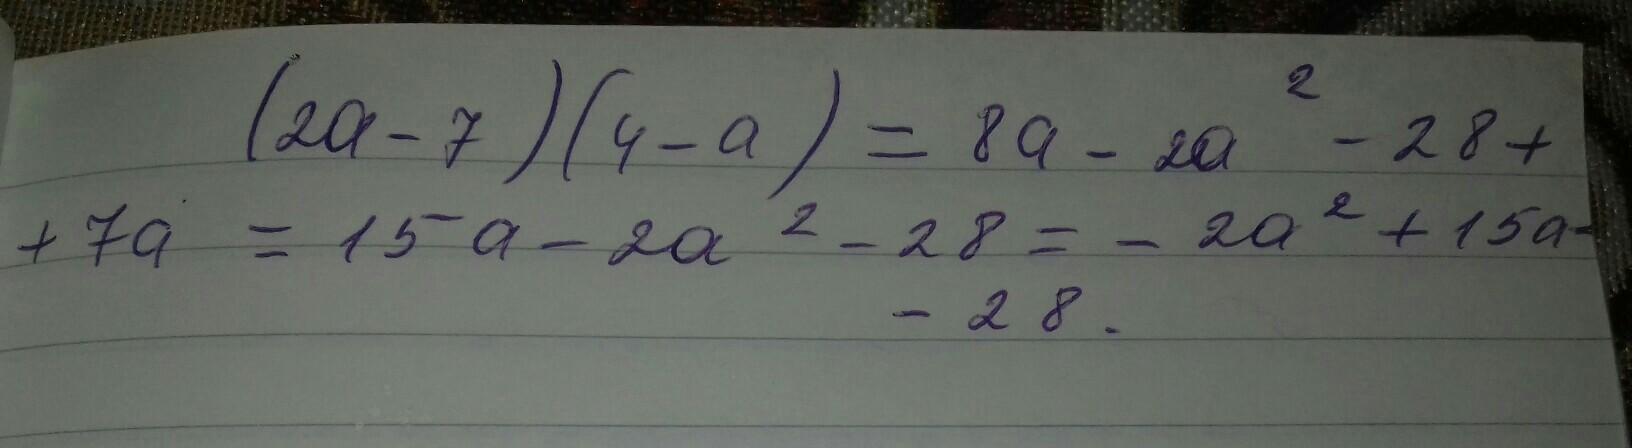 (2a-7)(4-a) = 8a - 2a² - 28 +
+ 7a = 15a - 2a² - 28 = - 2a² + 15a -
- 28.